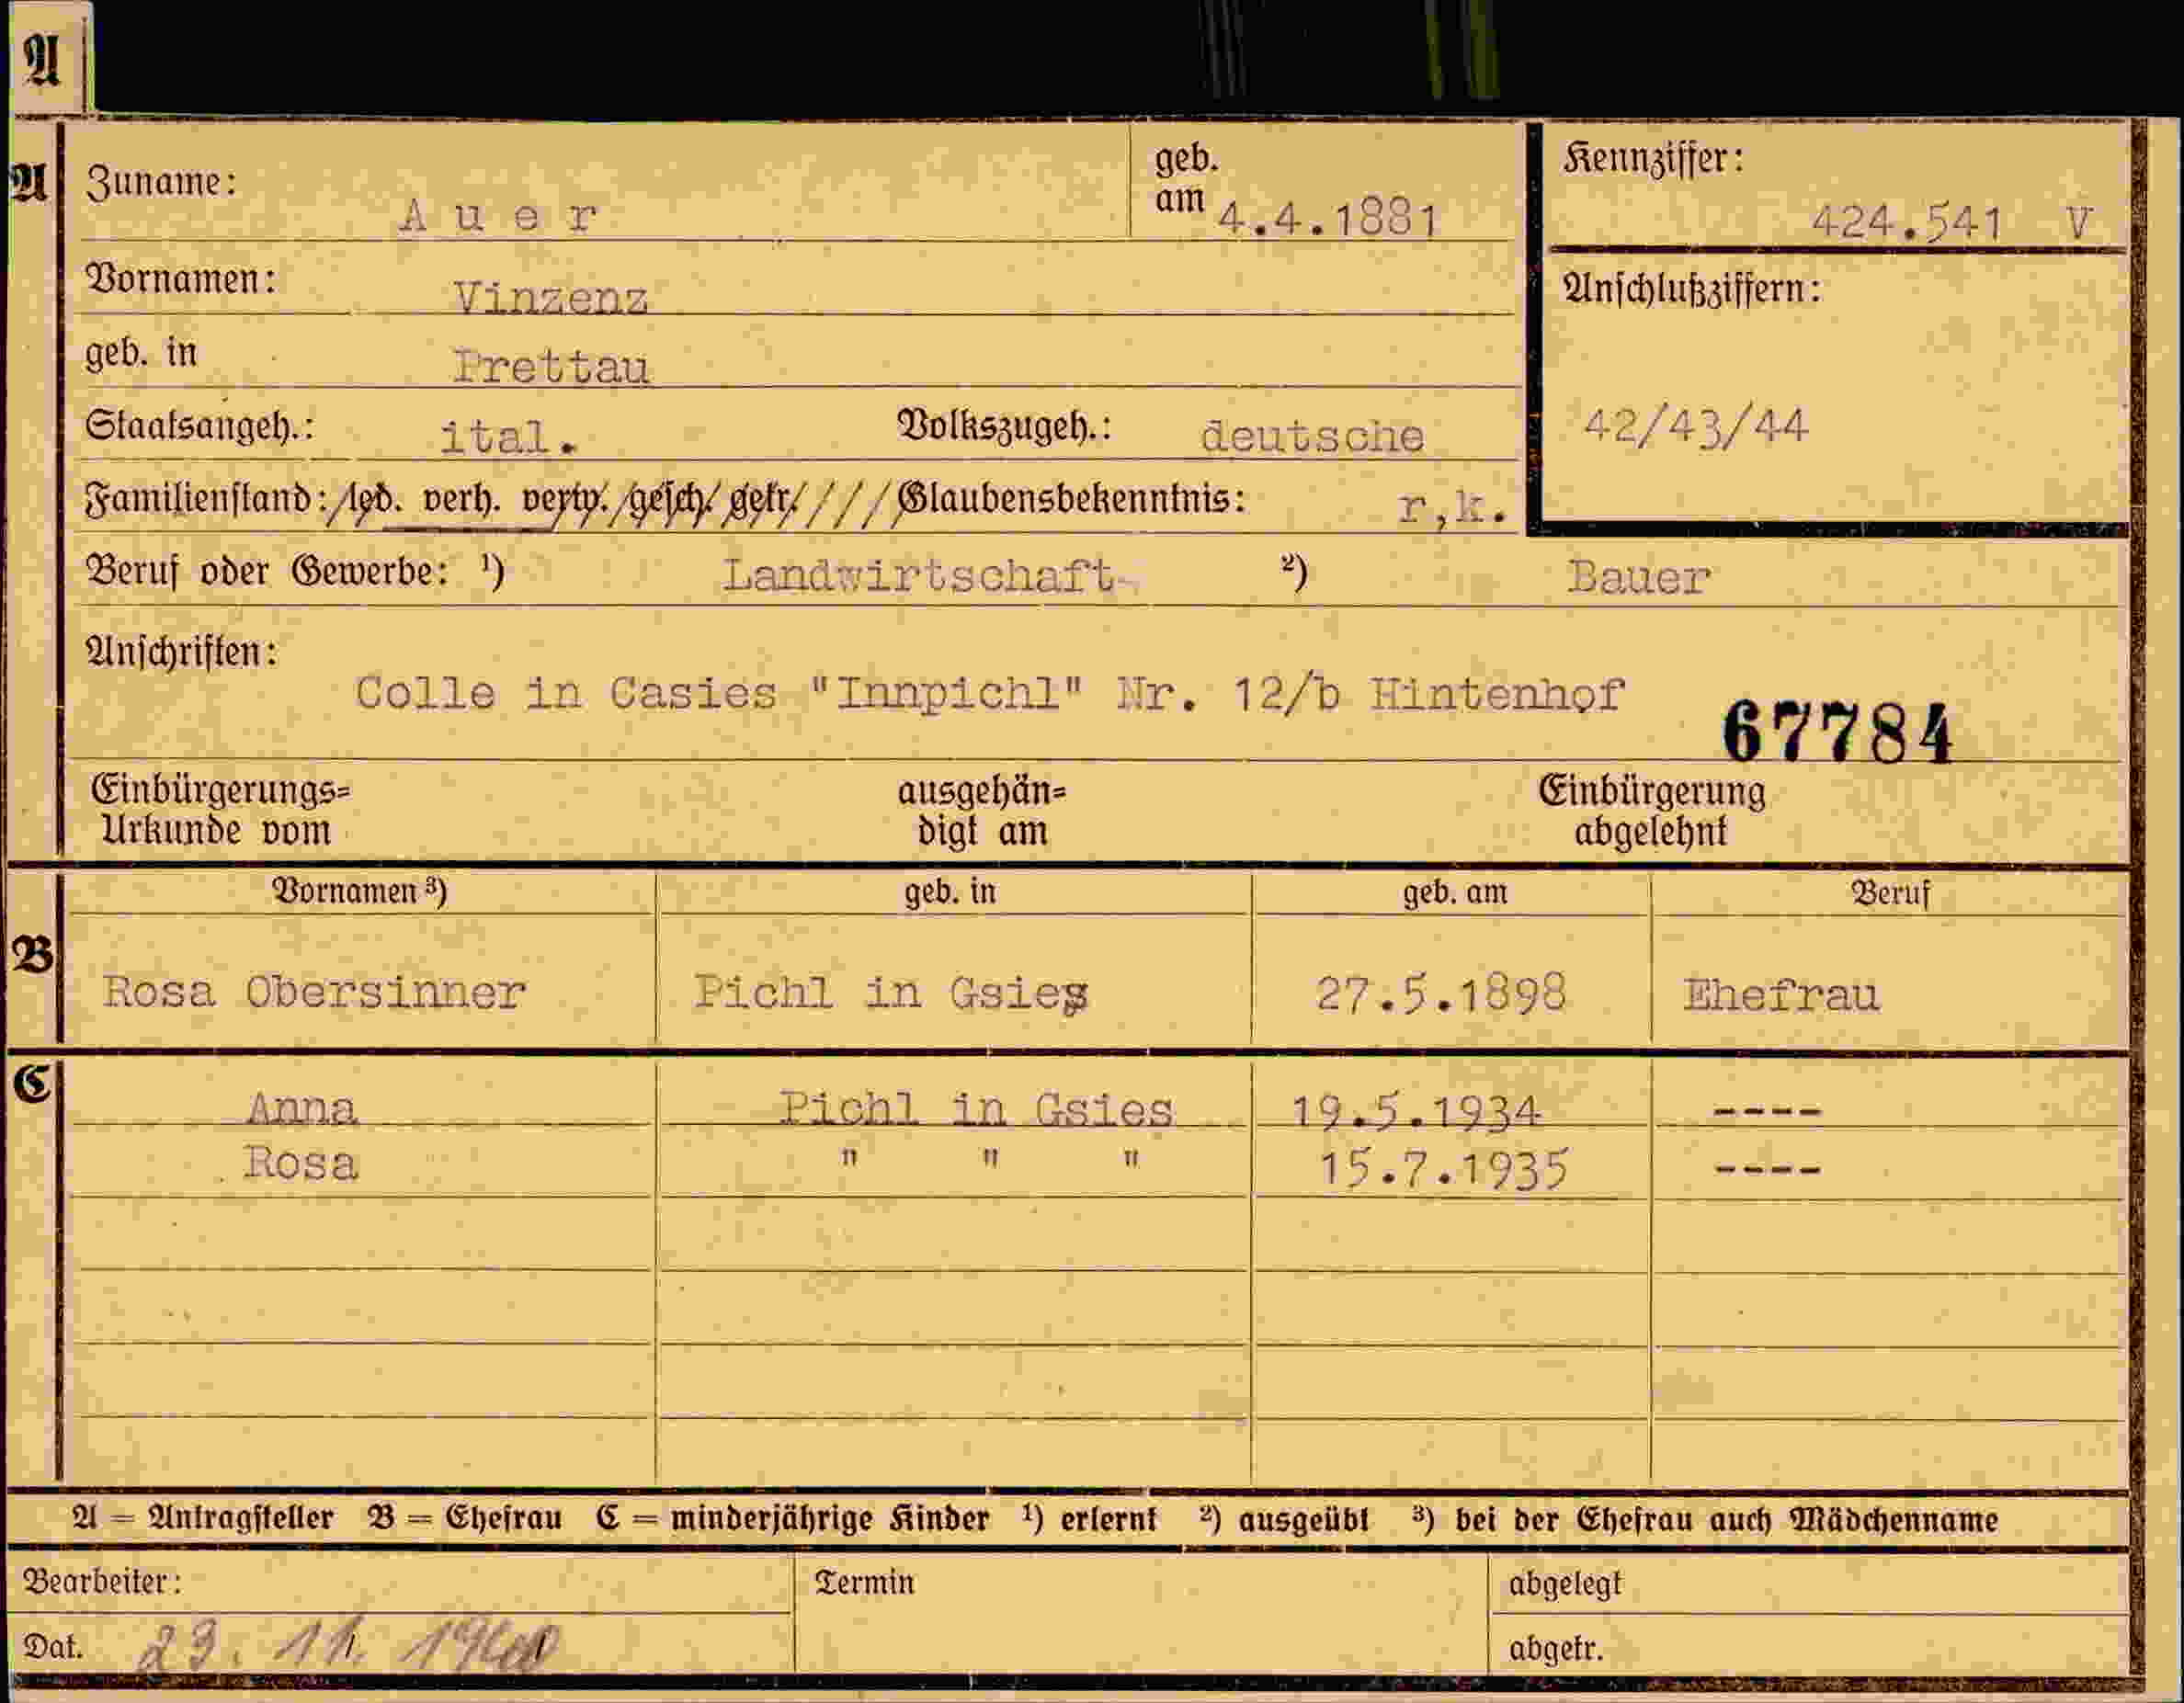 A
A
Zuname: Auer geb. am 4.4.1881
Kennziffer: 424.541 V
Vornamen: Vinzenz
Anschlußziffern:
geb. in Prettau
Staatsangeh.: ital. Volkszugeh.: deutsche
42/43/44
Familienstand: led. verh. verw. gesch. getr. Glaubensbekenntnis: r,k.
Beruf oder Gewerbe: ¹) Landwirtschaft ²) Bauer
Anschriften:
Colle in Casies "Innpichl" Nr. 12/b Hintenhof
67784
Einbürgerungs= Urkunde vom
ausgehän= digt am
Einbürgerung abgelehnt
Vornamen ³) geb. in geb. am Beruf
B
Rosa Obersinner Pichl in Gsies 27.5.1898 Ehefrau
C
Anna Pichl in Gsies 19.5.1934 ----
Rosa " " " 15.7.1935 ----
A = Antragsteller B = Ehefrau C = minderjährige Kinder ¹) erlernt ²) ausgeübt ³) bei der Ehefrau auch Mädchenname
Bearbeiter: Termin abgelegt
Dat. 23. 11. 1940 abgetr.